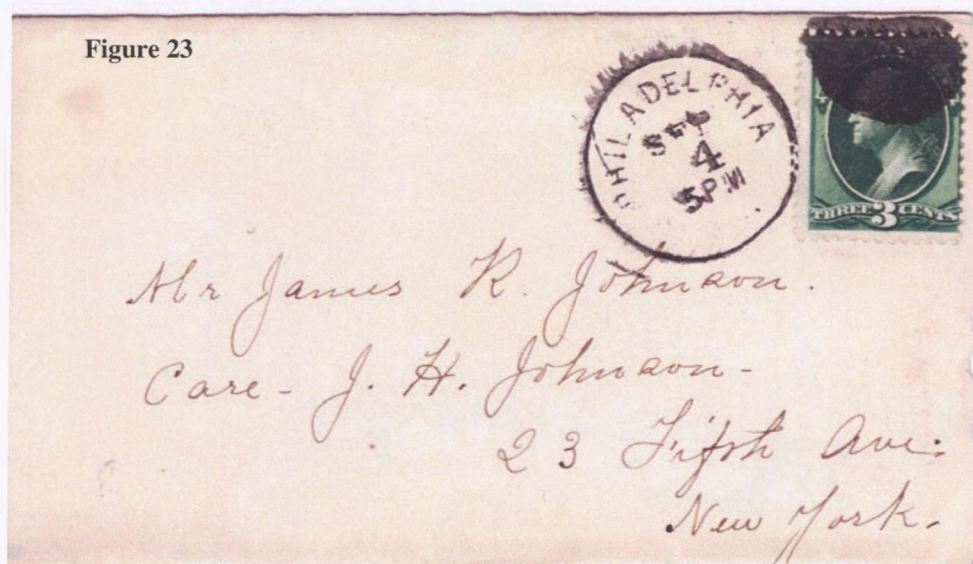 Figure 23
PHILADELPHIA
SEP
4
5PM
THREE 3 CENTS
Mr James R. Johnson.
Care - J. H. Johnson -
23 Fifth Ave.
New York.